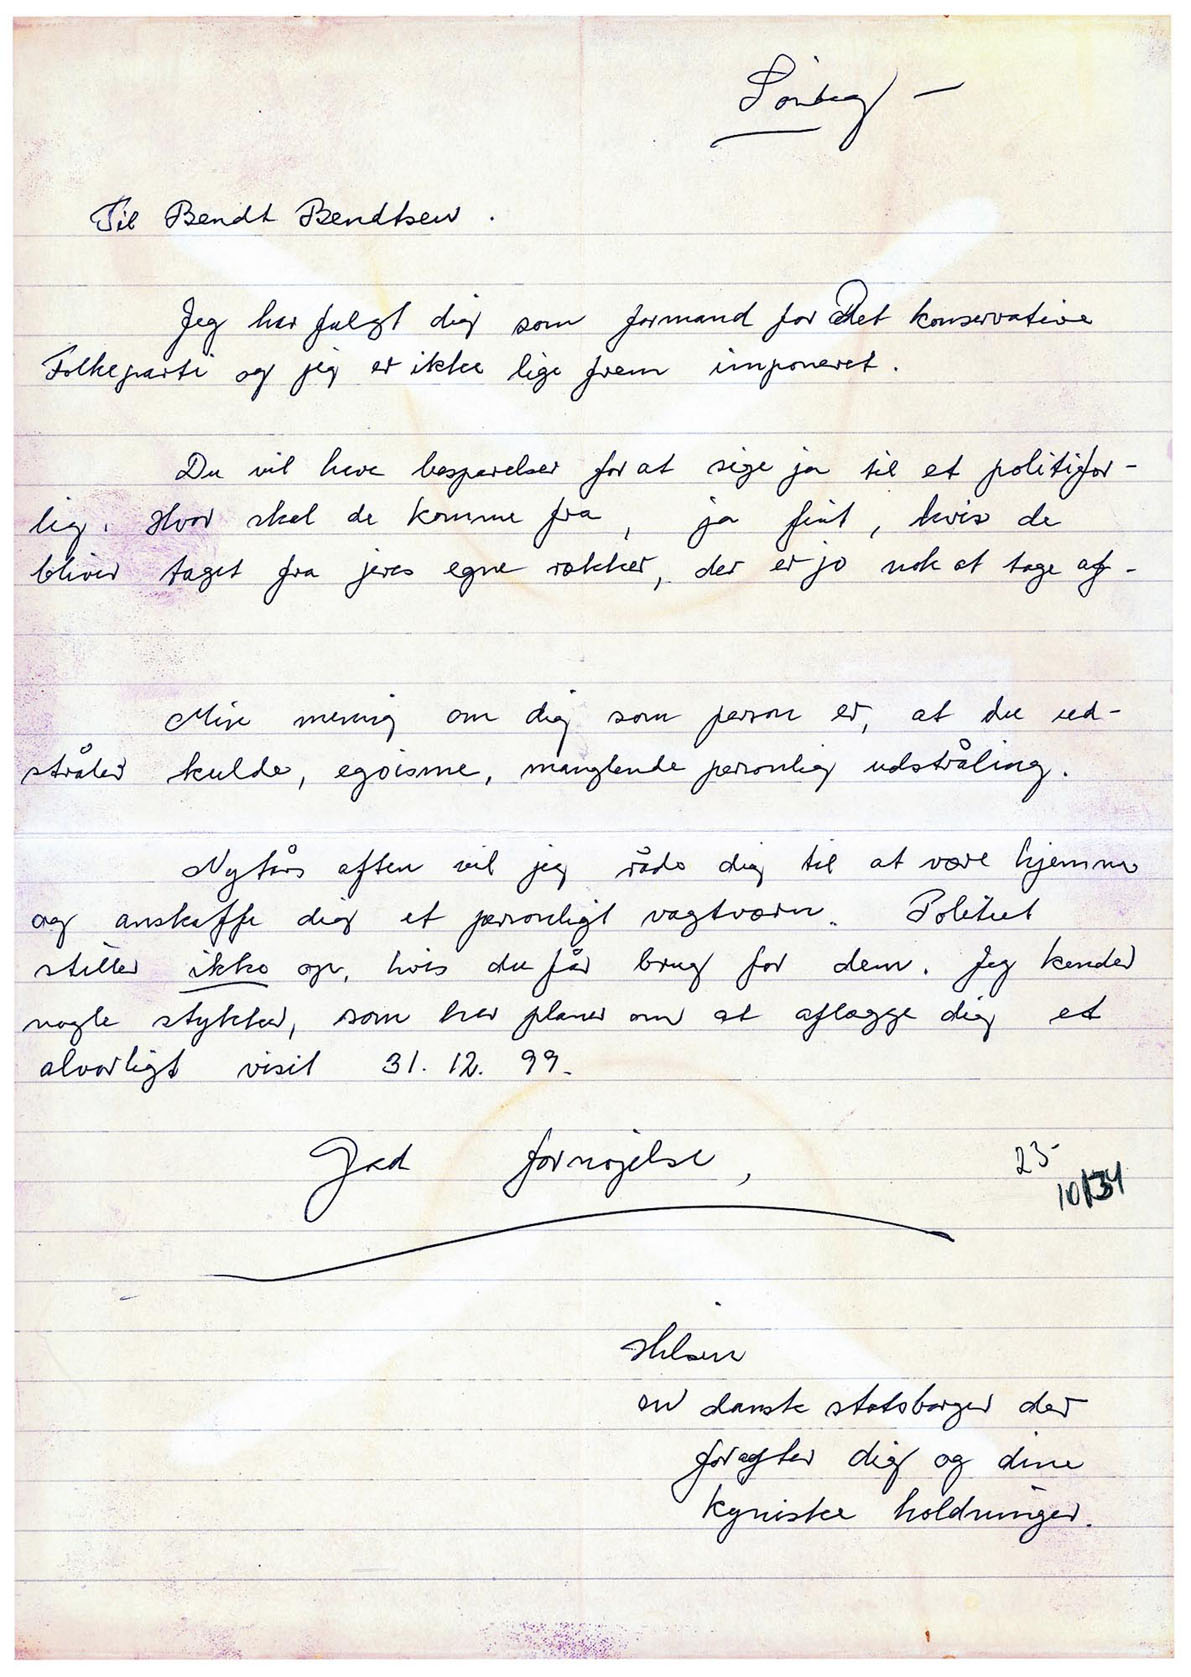 Søndag –
Til Bendt Bendtsen.
Jeg har fulgt dig som formand for Det konservative
Folkeparti og jeg er ikke lige frem imponeret.
Du vil have besparelser for at sige ja til et politifor-
lig. Hvor skal de komme fra, ja fint, hvis de
bliver taget fra jeres egne rækker, der er jo nok at tage af -
Min mening om dig som person er, at du ud-
stråler kulde, egoisme, manglende personlig udstråling.
Nytårs aften vil jeg råde dig til at være hjemme
og anskaffe dig et personligt vagtværn. Politiet
stiller ikke op, hvis du får brug for dem. Jeg kender
nogle stykker, som har planer om at aflægge dig et
alvorligt visit 31. 12. 99.
God fornøjelse,
23-
10/34
Hilsen
en dansk statsborger der
foragter dig og dine
kyniske holdninger.